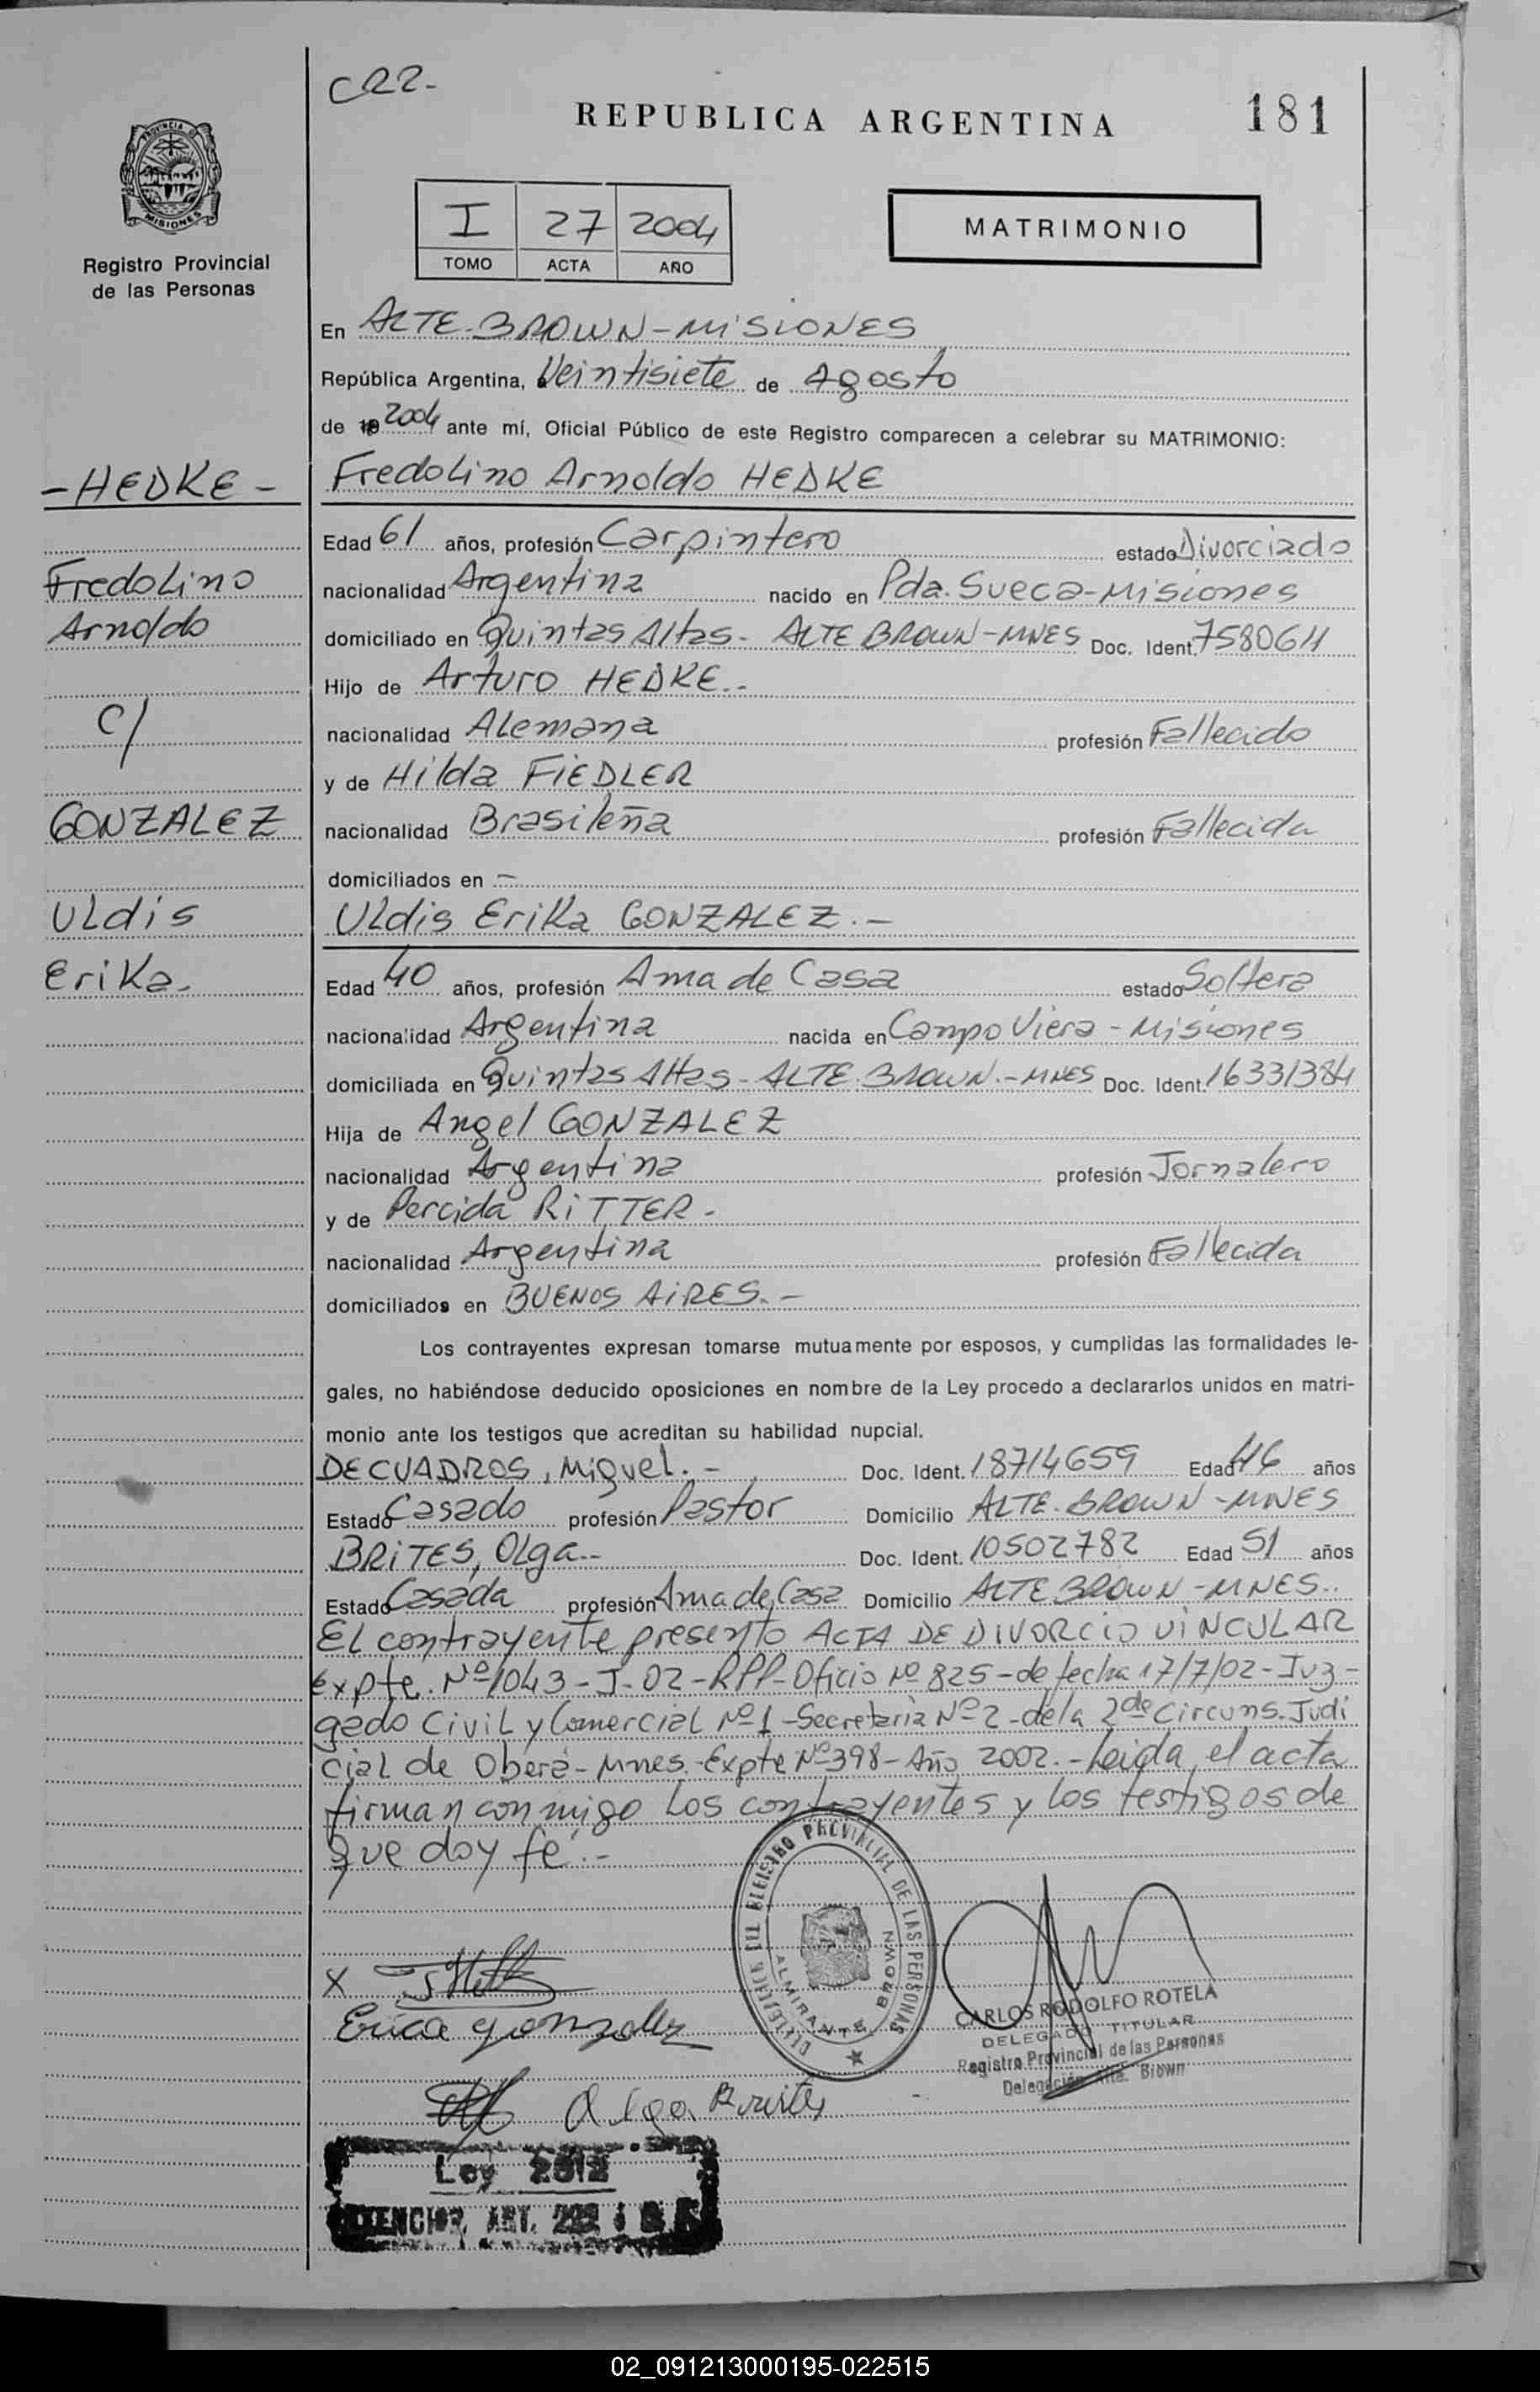 C22-
REPUBLICA ARGENTINA
181
PROVINCIA D
MISIONES
Registro Provincial
de las Personas
I 27 2004
TOMO ACTA AÑO
MATRIMONIO
En ALTE. BROWN - MISIONES
República Argentina, a Veintisiete de Agosto
de 19 2004 ante mí, Oficial Público de este Registro comparecen a celebrar su MATRIMONIO:
- HEDKE -
Fredolino Arnoldo HEDKE
Edad 61 años, profesión Carpintero estado Divorciado
Fredolino
nacionalidad Argentina nacido en Pda. Sueca - Misiones
Arnoldo
domiciliado en Quintas Altas - ALTE BROWN - MNES Doc. Ident. 7580611
Hijo de Arturo HEDKE.-
C/
nacionalidad Alemana profesión Fallecido
y de Hilda FIEDLER
GONZALEZ
nacionalidad Brasileña profesión Fallecida
domiciliados en -
Uldis
Uldis Erika GONZALEZ.-
Erika.
Edad 40 años, profesión Ama de Casa estado Soltera
nacionalidad Argentina nacida en Campo Viera - Misiones
domiciliada en Quintas Altas - ALTE. BROWN.- MNES Doc. Ident. 16331384
Hija de Angel GONZALEZ
nacionalidad Argentina profesión Jornalero
y de Percida RITTER -
nacionalidad Argentina profesión Fallecida
domiciliados en BUENOS AIRES.-
Los contrayentes expresan tomarse mutuamente por esposos, y cumplidas las formalidades le-
gales, no habiéndose deducido oposiciones en nombre de la Ley procedo a declararlos unidos en matri-
monio ante los testigos que acreditan su habilidad nupcial.
DECUADROS, Miguel.- Doc. Ident. 18714659 Edad 46 años
Estado Casado profesión Pastor Domicilio ALTE. BROWN - MNES
BRITES, Olga.- Doc. Ident. 10502782 Edad 51 años
Estado Casada profesión Ama de Casa Domicilio ALTE BROWN - MNES..
El contrayente presento ACTA DE DIVORCIO VINCULAR
expte. Nº 1043 - J - 02 - RPP - Oficio Nº 825 - de fecha 17/7/02 - Juz-
gado Civil y Comercial Nº 1 - Secretaria Nº 2 - de la 2da Circuns. Judi
cial de Oberá - Mnes. - Expte Nº 398 - Año 2002. - Leida el acta
firman conmigo los contrayentes y los testigos de
que doy fe.-
REGISTRO PROVINCIAL DE LAS PERSONAS
ALMIRANTE BROWN
X
Erica Gonzalez
CARLOS RODOLFO ROTELA
DELEGADO TITULAR
Registro Provincial de las Personas
Delegación Alte. Brown
Olga Brites
Ley
ART.
02_091213000195-022515